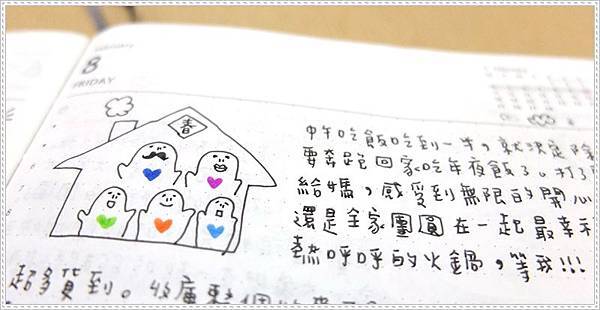 February
8
FRIDAY
春
中午吃飯吃到一半，就決定除
要奔跑回家吃年夜飯了。打了
給媽，感受到無限的開心
還是全家團圓在一起最幸福
熱呼呼的火鍋，等我!!!
超多貨到。收廣